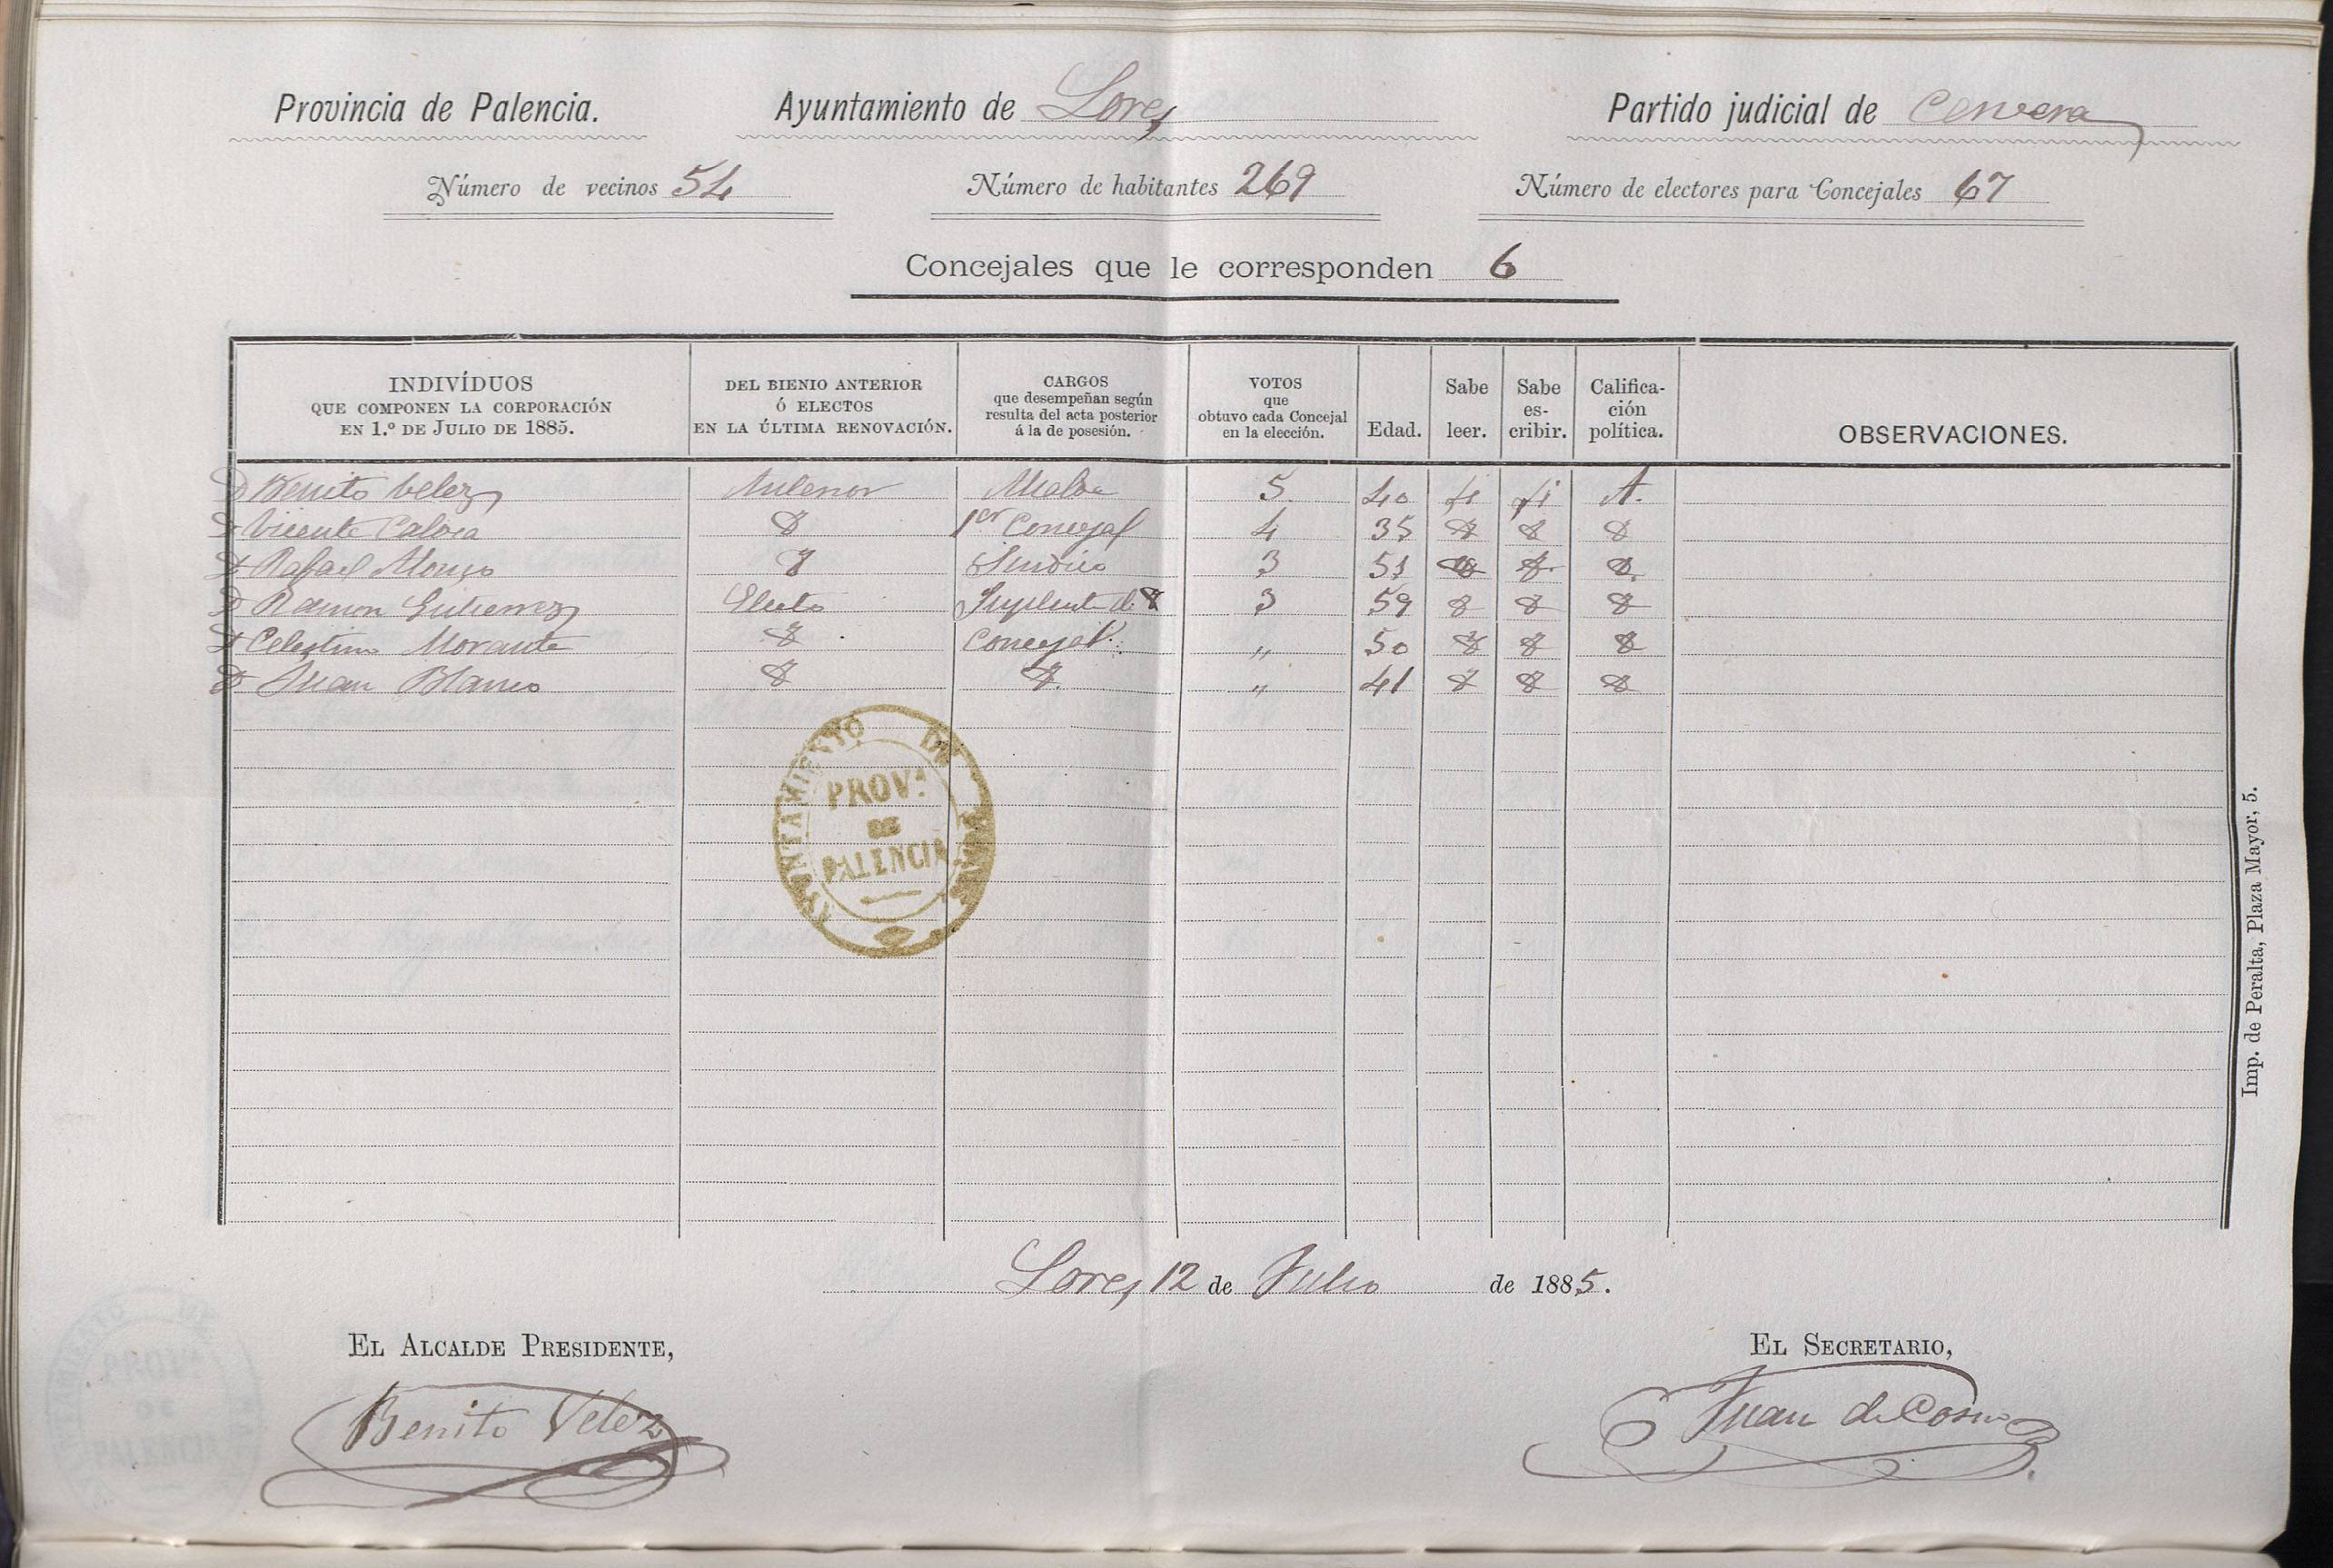 Provincia de Palencia. Ayuntamiento de Lores Partido judicial de Cervera
Número de vecinos 54 Número de habitantes 269 Número de electores para Concejales 67
Concejales que le corresponden 6
INDIVÍDUOS QUE COMPONEN LA CORPORACIÓN EN 1.º DE JULIO DE 1885. DEL BIENIO ANTERIOR Ó ELECTOS EN LA ÚLTIMA RENOVACIÓN. CARGOS que desempeñan según resulta del acta posterior á la de posesión. VOTOS que obtuvo cada Concejal en la elección. Edad. Sabe leer. Sabe es-cribir. Califica-ción política. OBSERVACIONES.
D Benito Velez Anterior Alcalde 5 40 si si A.
D Vicente Caloca 1er Concejal 4 35
D Rafael Alonso Sindico 3 51
D Ramon Gutierrez Electo Suplente de 3 59
D Celestino Morante Concejal " 50
D Juan Blanco " 41
AYUNTAMIENTO DE
PROVª
DE
PALENCIA
Lores 12 de Julio de 1885.
EL ALCALDE PRESIDENTE, EL SECRETARIO,
Benito Velez Juan de Cosio
Imp. de Peralta, Plaza Mayor, 5.
PROVª
DE
PALENCIA